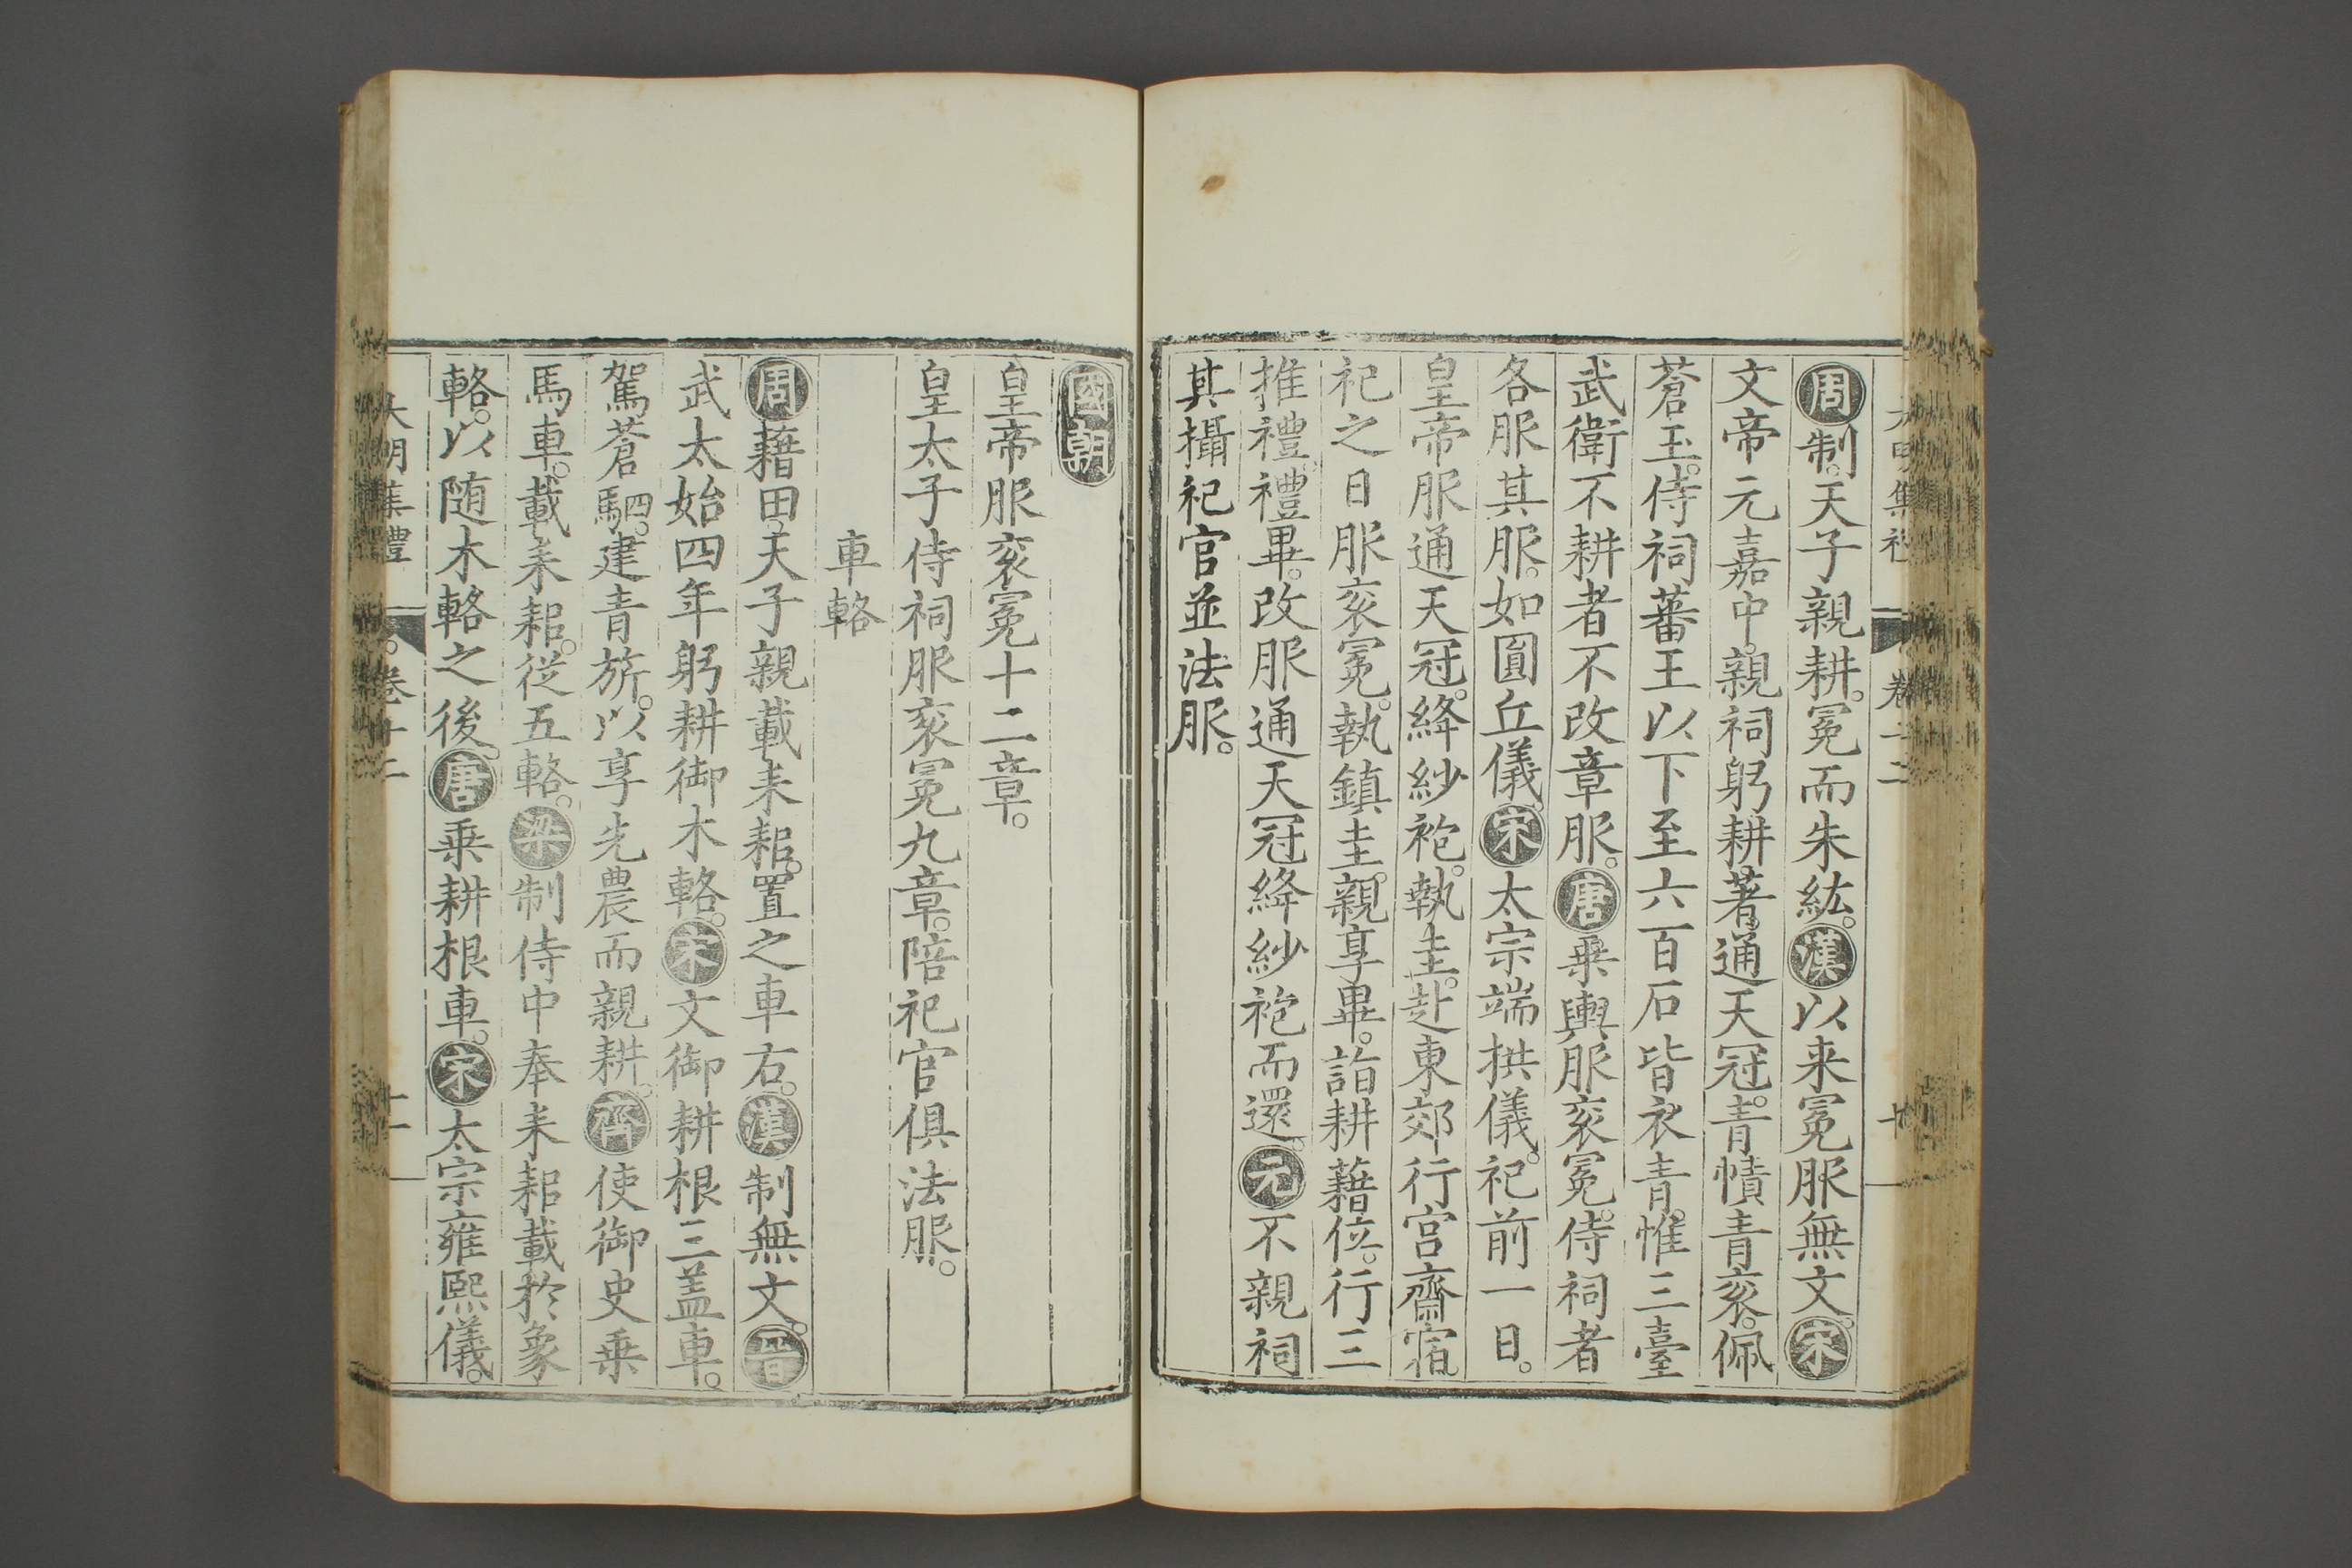 周制。天子親耕。冕而朱紘。漢以来冕服無文。宋
文帝元嘉中。親祠躬耕。著通天冠。青幘青衮。佩
蒼玉。侍祠蕃王以下至六百石皆衣青。惟三臺
武衛不耕者不改章服。唐乗輿服衮冕。侍祠者
各服其服。如圓丘儀。宋太宗端拱儀。祀前一日。
皇帝服通天冠。絳紗袍。執圭。赴東郊行宫齋宿。
祀之日服衮冕。執鎮圭。親享畢。詣耕藉位。行三
推禮。禮畢。改服通天冠絳紗袍而還。元不親祠
其攝祀官並法服。
國朝
皇帝服衮冕十二章。
皇太子侍祠服衮冕九章。陪祀官俱法服。
車輅
周藉田。天子親載耒耜。置之車右。漢制無文。晉
武太始四年躬耕御木輅。宋文御耕根三盖車。
駕蒼駟。建青旂。以享先農而親耕。齊使御史乗
馬車。載耒耜。従五輅。梁制侍中奉耒耜載於象
輅。以随木輅之後。唐乗耕根車。宋太宗雍熙儀。
大明集禮 卷十二